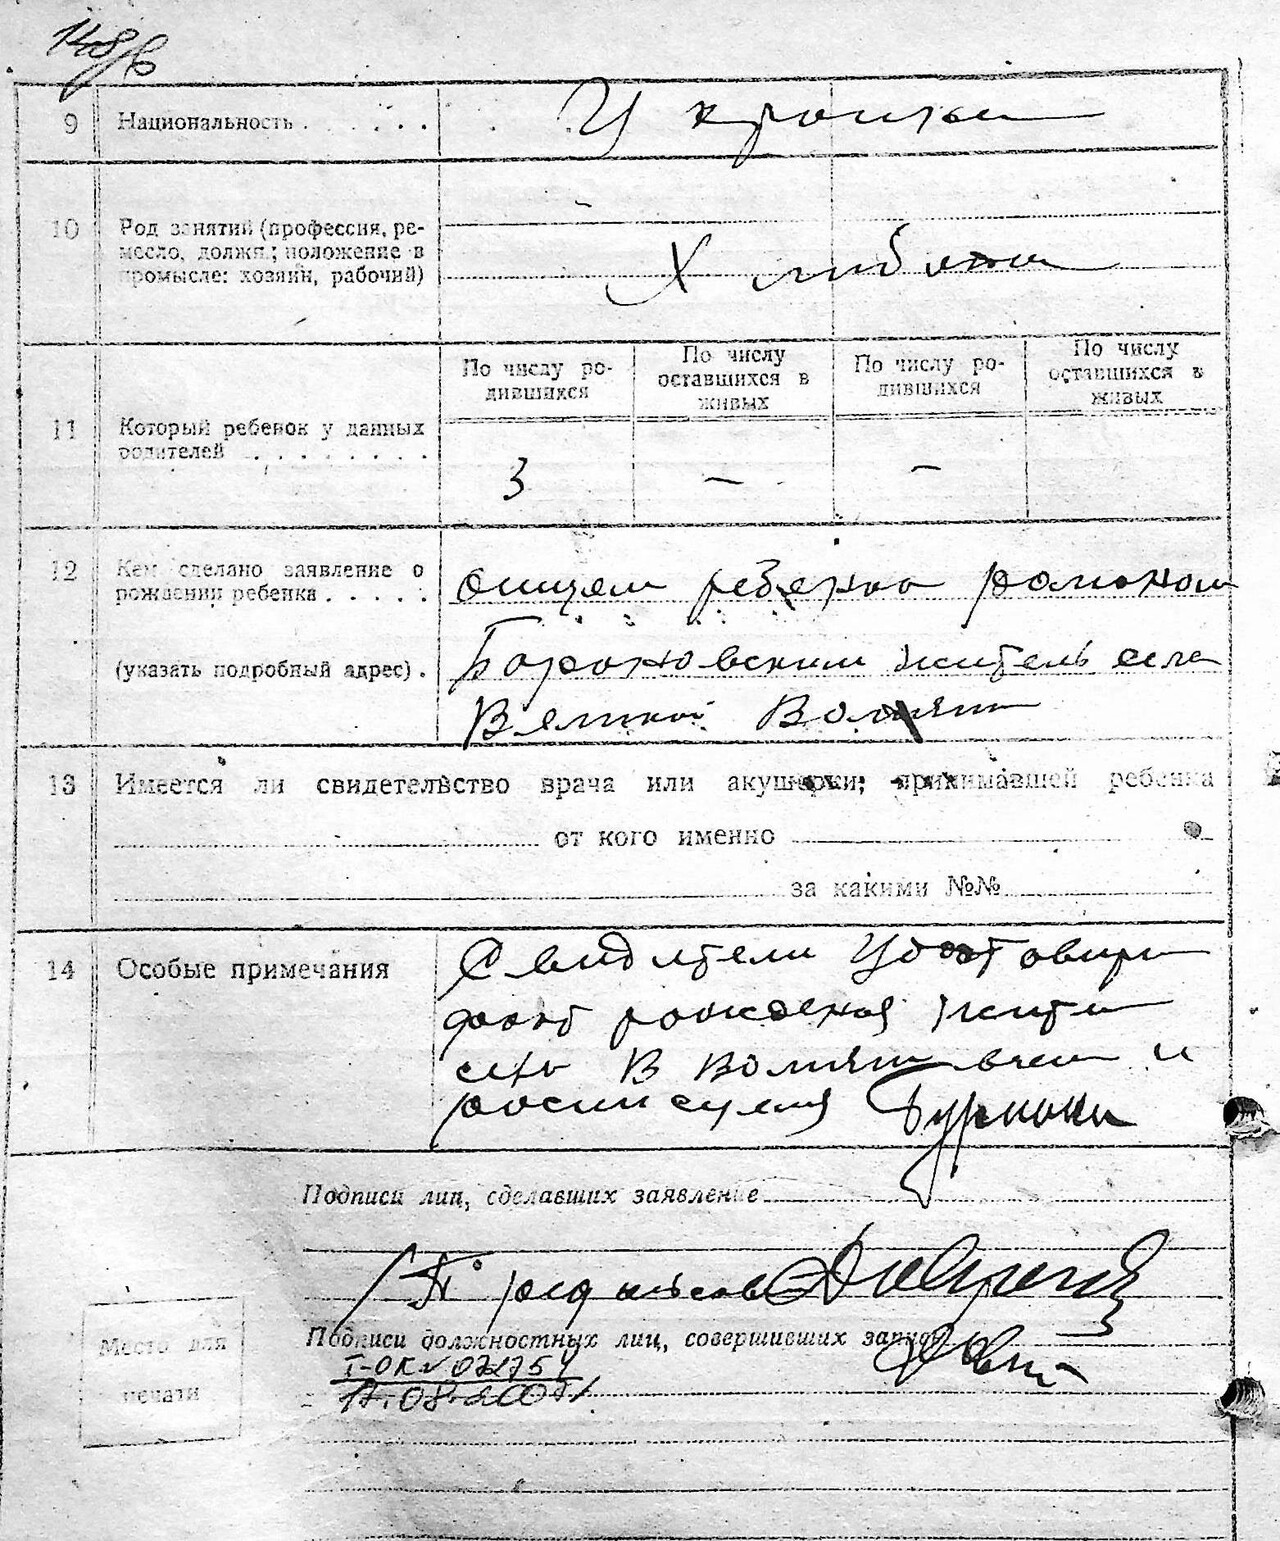 148/6
9 Национальность . . . . . . Украинцы
10 Род занятий (профессия, ре-
месло, должн.; положение в
промысле: хозяин, рабочий)
Хлибопаши
По числу ро-
дившихся
По числу
оставшихся в
живых
По числу ро-
дившихся
По числу
оставшихся в
живых
11 Который ребенок у данных
родителей . . . . . . . .
3 — —
12 Кем сделано заявление о
рождении ребенка . . . . .
отцем ребенка Романом
(указать подробный адрес) .
Барановским житель села
Великой
13 Имеется ли свидетельство врача или акушерки, принимавшей ребенка
от кого именно
за какими №№
14 Особые примечания
Свидители
факт рождения жители
села В и
Подписи лиц, сделавших заявление
Подписи должностных лиц, совершивших запись
I-ОК №
17.08.2007
Место для
печати